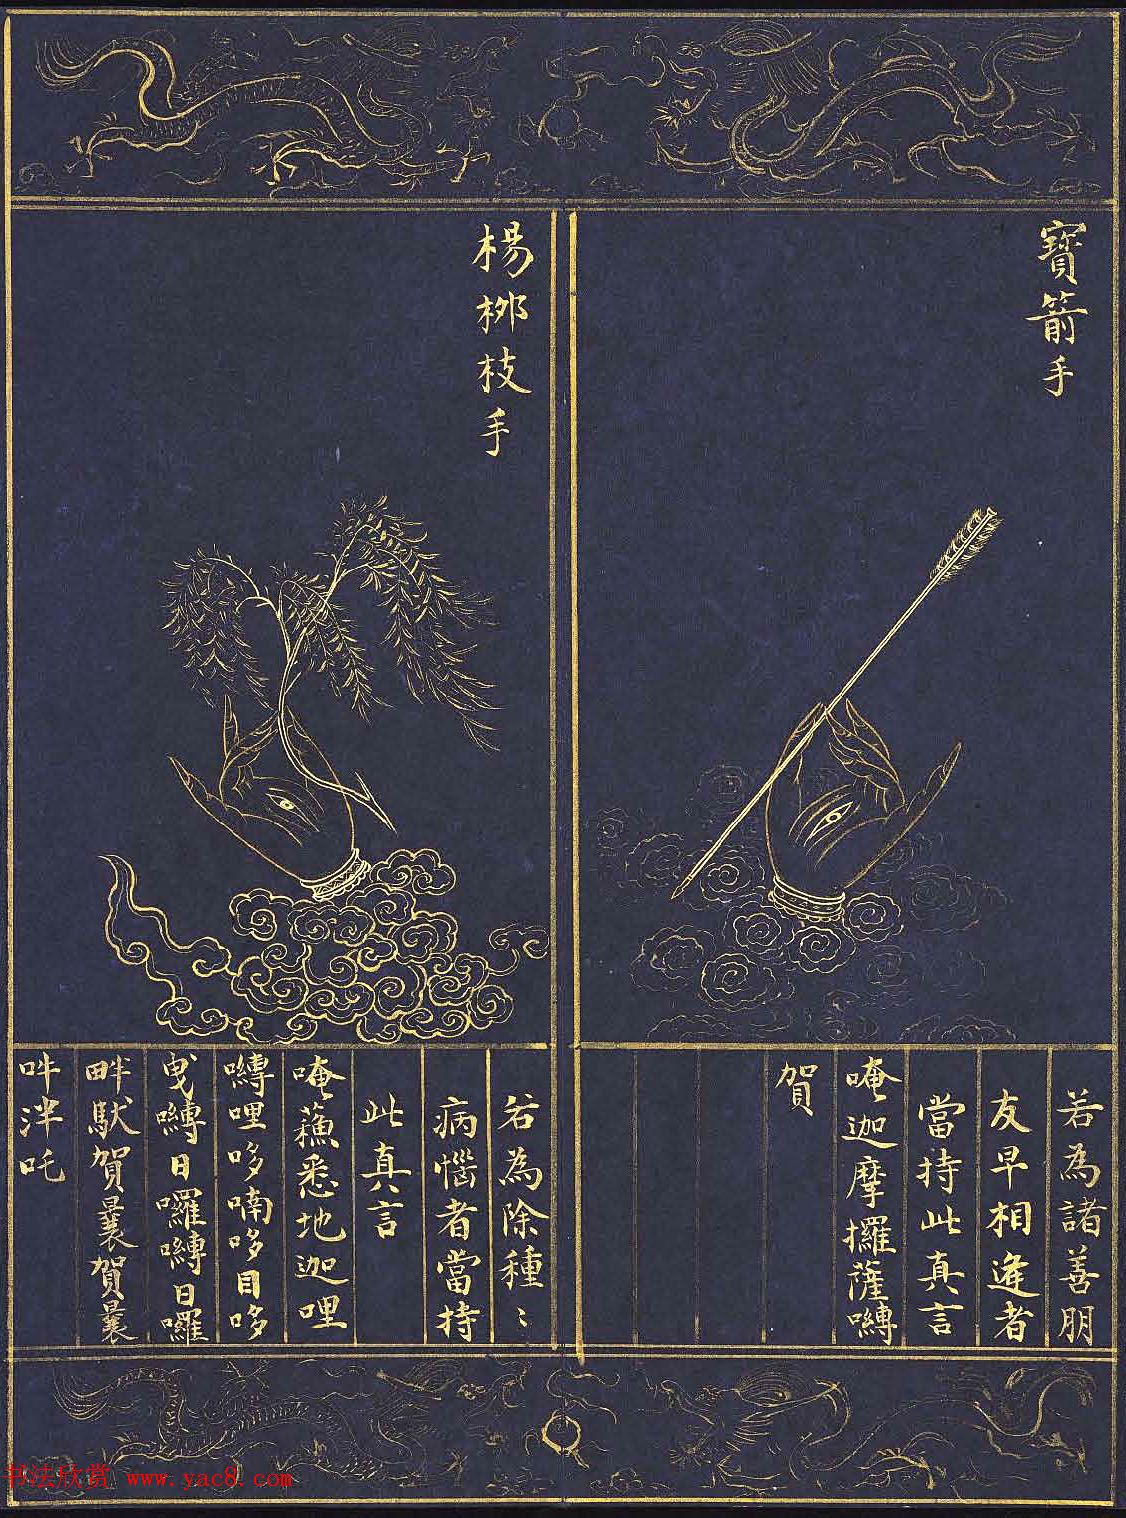 寶箭手
若為諸善朋
友早相逢者
當持此真言
唵迦摩攞薩嚩
賀
楊栁枝手
若為除種〻
病惱者當持
此真言
唵蘓悉地迦哩
嚩哩哆喃哆目哆
曳嚩日囉嚩日囉
畔馱賀曩賀曩
吽泮吒
书法欣赏 www.yac8.com